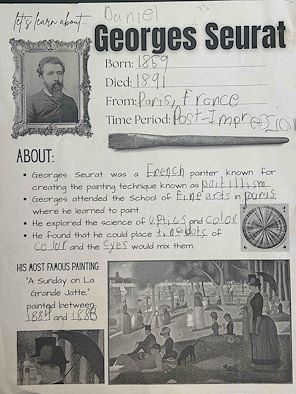 let's learn about... Daniel
Georges Seurat
Born: 1859
Died: 1891
From: Paris, France
Time Period: Post-Impression
ABOUT:
• Georges Seurat was a French panter known for
creating the painting technique known as
• Georges attended the School of Fine arts in paris
where he learned to paint.
• He explored the science of optics and color
• He found that he could place tiny dots of
color and the eyes would mix them.
HIS MOST FAMOUS PAINTING:
"A Sunday on La
Grande Jatte,"
painted between
1884 and 1886